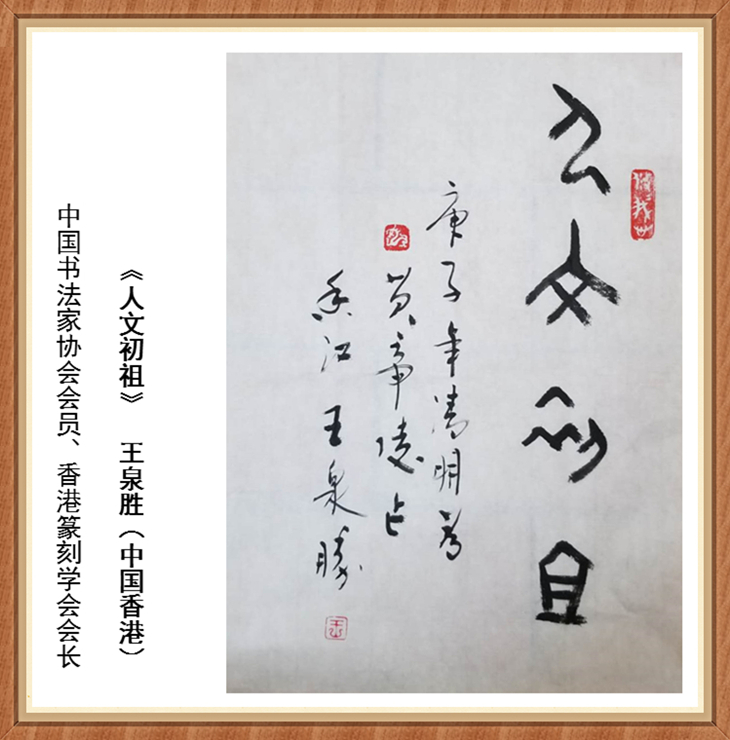 人文初且
庚子年清明
黄帝陵
香江王泉勝
《人文初祖》 王泉胜（中国香港）
中国书法家协会会员、香港篆刻学会会长